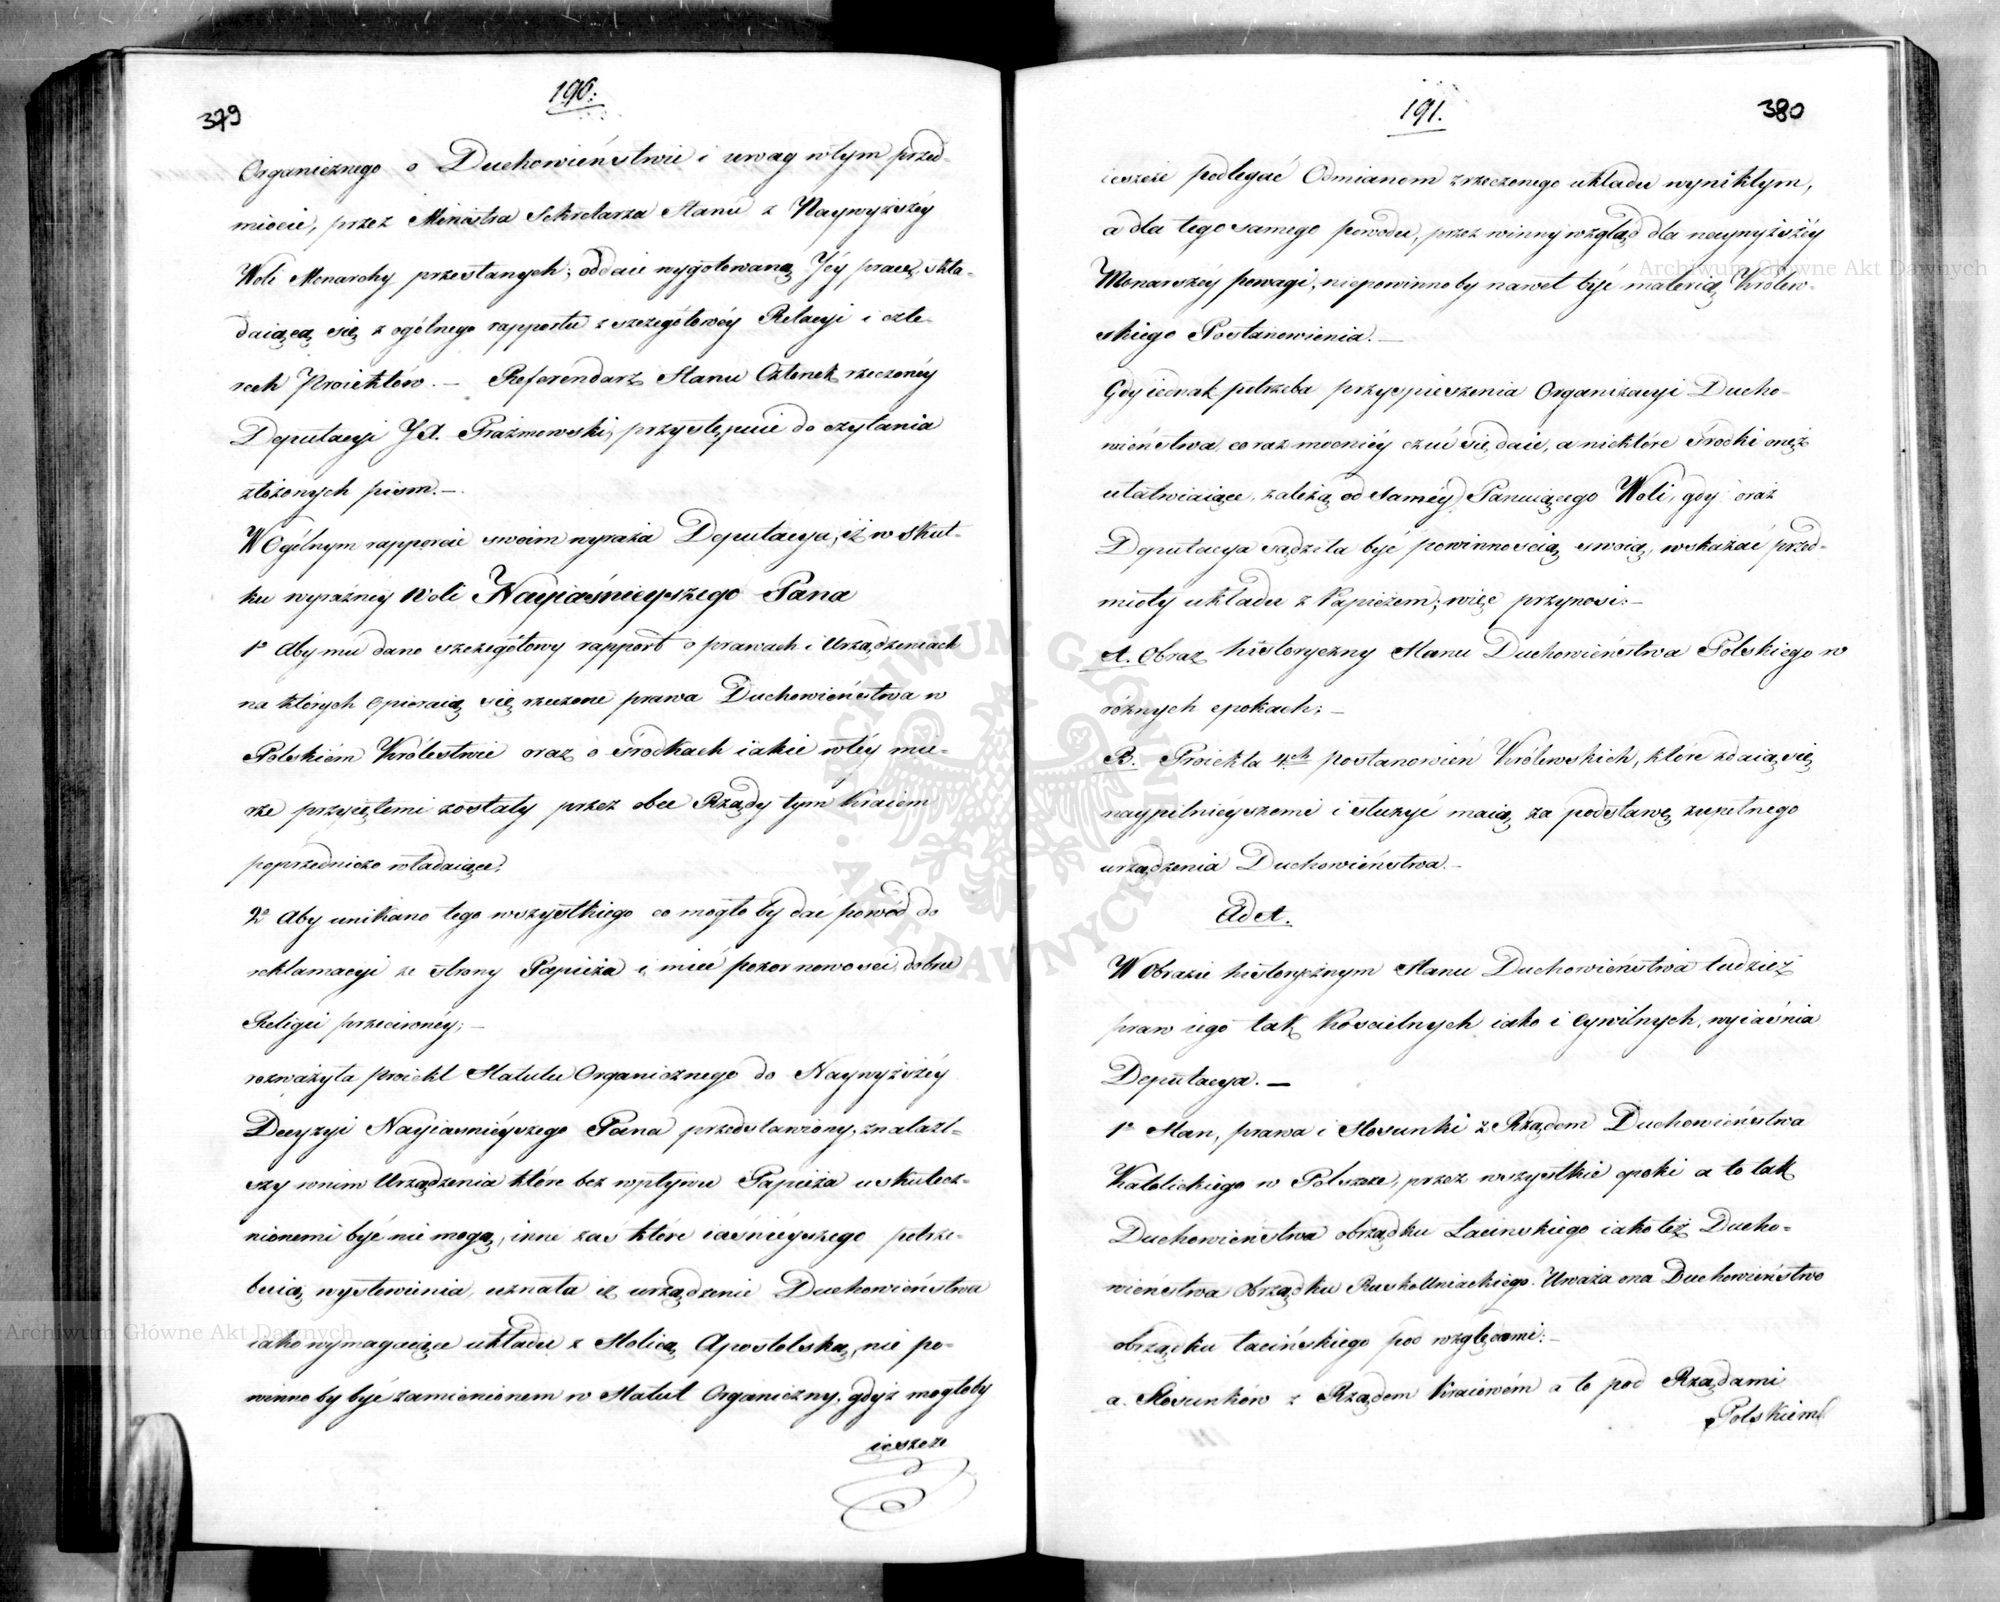 379
190.
Organicznego o Duchowieństwie i uwag w tym przed-
miocie, przez Ministra Sekretarza Stanu z Naywyższéy
Woli Monarchy przesłanych; oddaie wygotowaną Jéy pracę, skła-
daiącą się z ogólnego rapportu z szczegółowéy Relacyi i czte-
rech Proiektów. — Referendarz Stanu Członek rzeczonéy
Deputacyi JX. Prażmowski, przystępuie do czytania
złożonych pism. —
W Ogólnym rapporcie swoim wyraża Deputacya, iż w skut-
ku wyraźnéy Woli Nayiaśnieyszego Pana
1º Aby mu dano szczegółowy rapport o prawach i Urządzeniach
na których opieraią się rzeczone prawa Duchowieństwa w
Polskiém Królestwie oraz o srodkach iakie w téy mie-
rze przyiętemi zostały przez obce Rządy tym Kraiem
poprzedniczo władaiące;
2º Aby unikano tego wszystkiego co mogło by dać powód do
reklamacyi ze strony Papieża i mieć pozor nowosci, dobru
Religii przeciwnéy; —
rozważyła proiekt Statutu Organicznego do Naywyższéy
Decyzyi Nayiasniéyszego Pana przedstawiony, znalazł-
szy w nim Urządzenia które bez wpływu Papieża uskutecz-
nionemi być nie mogą, inne zaś które iaśniéyszego potrze-
buią wysłowienia, uznała iż urządzenie Duchowieństwa
iako wymagaiące układu z Stolicą Apostolską, nie po-
winno by być zamienionem w Statut Organiczny, gdyż mogłoby
ieszcze
191.
380
ieszcze podlegać Odmianom z rzeczonego układu wynikłym,
a dla tego samego powodu, przez winny wzgląd dla naywyższéy
Monarszéy powagi, niepowinno by nawet być materią Królew-
skiego Postanowienia. —
Gdy iednak potrzeba przyspieszenia Organizacyi Ducho-
wieństwa, co raz mocniéy czuć się daie, a niektóre środki onéż
ułatwiaiące, zależą od saméy Panuiącego Woli, gdy oraz
Deputacya sądziła być powinnoscią swoią, wskazać przed-
mioty układu z Papieżem; więc przynosi: —
A. Obraz historyczny Stanu Duchowieństwa Polskiego w
różnych epokach; —
B. Proiekta 4ch postanowień Królewskich, które zdaią się
naypilniéyszemi i służyć maią za podstawę zupełnego
urządzenia Duchowieństwa. —
Ad A.
W Obrazie historycznym Stanu Duchowieństwa tudzież
praw iego tak Koscielnych iako i Cywilnych, wyiaśnia
Deputacya. —
1º Stan, prawa i Stosunki z Rządem Duchowieństwa
Katolickiego w Polszcze, przez wszystkie epoki a to tak
Duchowieństwa obrządku Łacinskiego iako też Ducho-
wieństwa Obrządku Rusko Uniackiego. Uważa ona Duchowieństwo
obrządku łacińskiego pod względami: —
a. Stosunków z Rządem Kraiowém a to pod Rządami
Polskiemi
Archiwum Główne Akt Dawnych
Archiwum Główne Akt Dawnych
ARCHIWUM GŁÓWNE AKT DAWNYCH